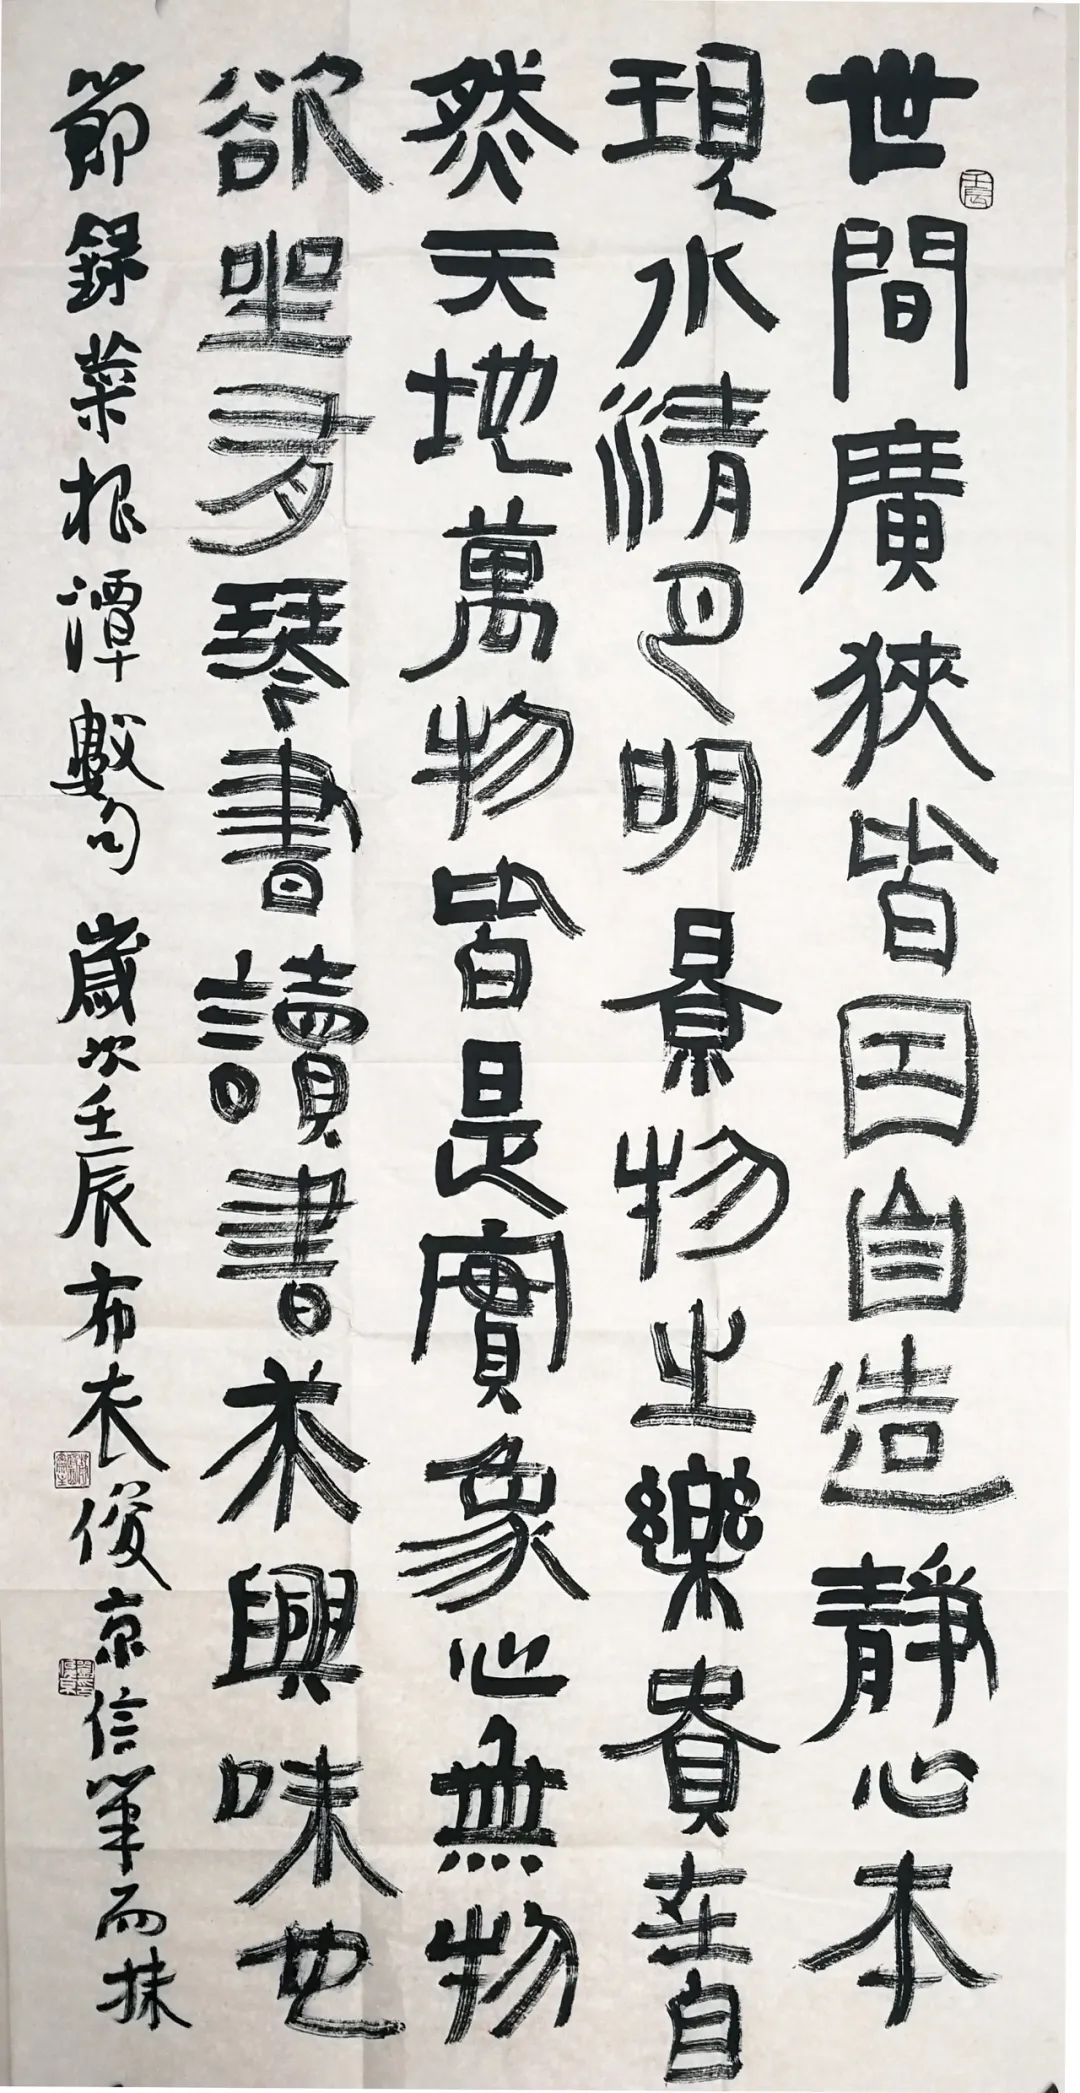 世間廣狹皆因自造靜心本
現水清月明景物之樂貴在自
然天地萬物皆是實象心無物
欲坐有琴書讀書求興味也
節錄菜根潭數句 歲次壬辰布衣俊京信筆而抹
壬辰